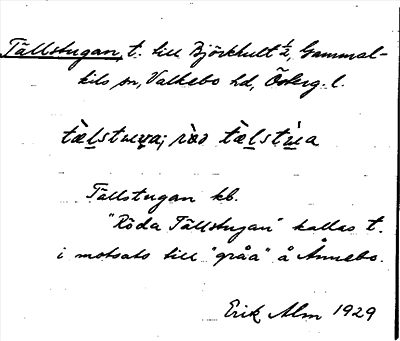 Tällstugan, t. till Björkhult ½, Gammal-
kils sn, Valkebo hd, Österg. l.
tæ̀lstuɯa; rö̀ tæ̀lstúa
Tällstugan kb.
"Röda Tällstugan" kallas t.
i motsats till "gråa" å Ånnebo.
Erik Alm 1929